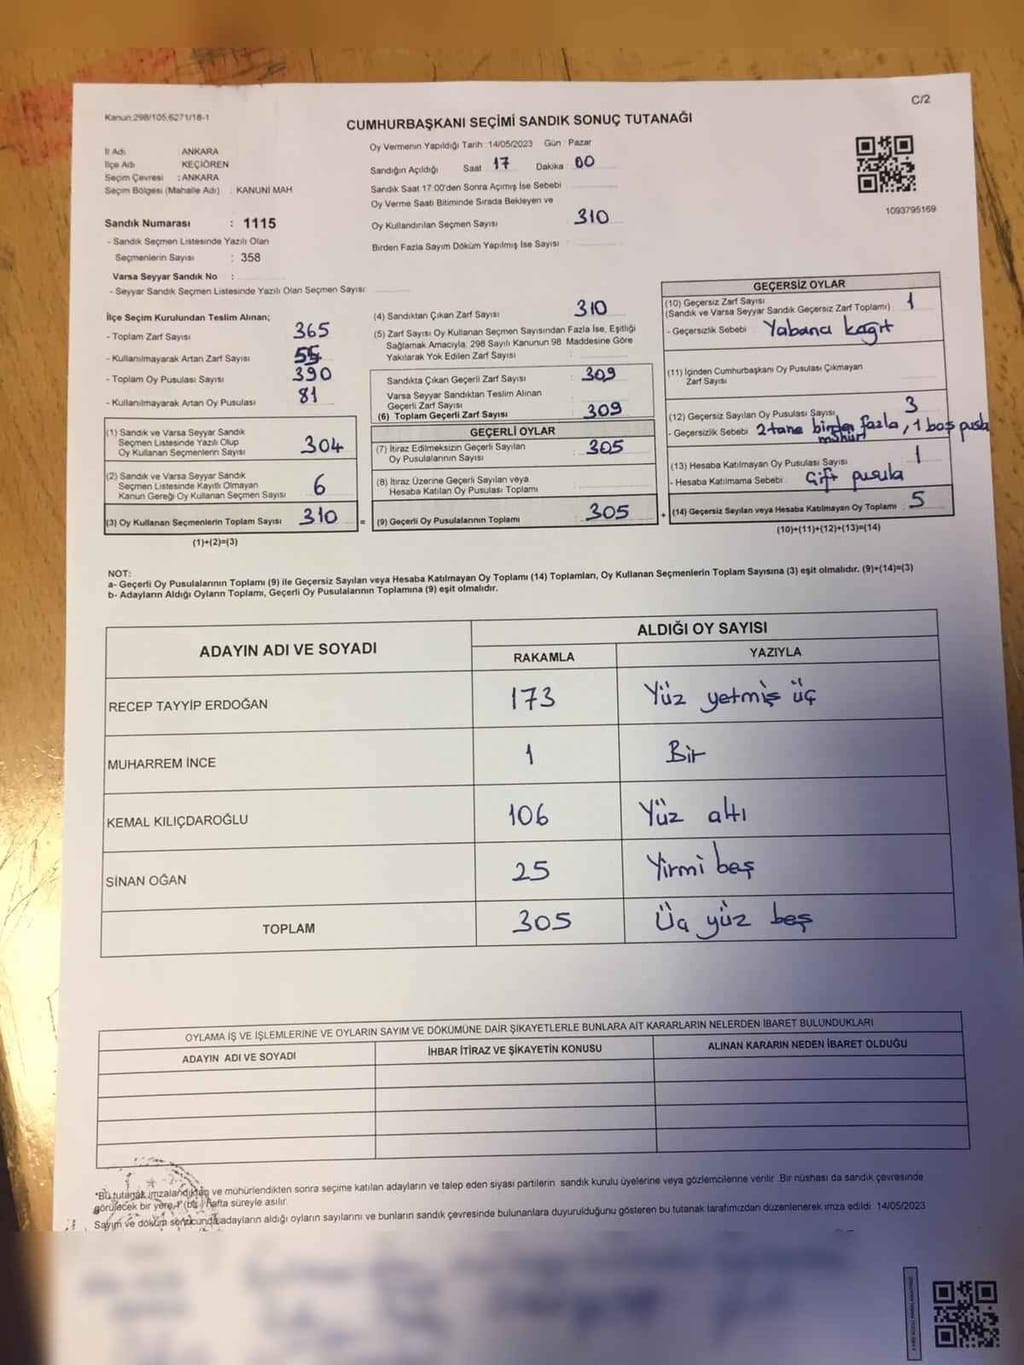 C/2
Kanun:298/105,6271/18-1
CUMHURBAŞKANI SEÇİMİ SANDIK SONUÇ TUTANAĞI
İl Adı ANKARA
İlçe Adı KEÇİÖREN
Seçim Çevresi : ANKARA
Seçim Bölgesi (Mahalle Adı) : KANUNİ MAH
Oy Vermenin Yapıldığı Tarih :14/05/2023 Gün Pazar
Sandığın Açıldığı Saat 17 Dakika 00
Sandık Saat 17:00'den Sonra Açımış İse Sebebi
Oy Verme Saati Bitiminde Sırada Bekleyen ve
Oy Kullandırılan Seçmen Sayısı 310
Birden Fazla Sayım Döküm Yapılmış İse Sayısı :
1093795169
Sandık Numarası : 1115
- Sandık Seçmen Listesinde Yazılı Olan
Seçmenlerin Sayısı : 358
Varsa Seyyar Sandık No :
- Seyyar Sandık Seçmen Listesinde Yazılı Olan Seçmen Sayısı:
İlçe Seçim Kurulundan Teslim Alınan;
- Toplam Zarf Sayısı 365
- Kullanılmayarak Artan Zarf Sayısı 55
- Toplam Oy Pusulası Sayısı 390
- Kullanılmayarak Artan Oy Pusulası 81
(1) Sandık ve Varsa Seyyar Sandık
Seçmen Listesinde Yazılı Olup
Oy Kullanan Seçmenlerin Sayısı 304
(2) Sandık ve Varsa Seyyar Sandık
Seçmen Listesinde Kayıtlı Olmayan
Kanun Gereği Oy Kullanan Seçmen Sayısı 6
(3) Oy Kullanan Seçmenlerin Toplam Sayısı 310 =
(1)+(2)=(3)
(4) Sandıktan Çıkan Zarf Sayısı 310
(5) Zarf Sayısı Oy Kullanan Seçmen Sayısından Fazla İse, Eşitliği
Sağlamak Amacıyla, 298 Sayılı Kanunun 98. Maddesine Göre
Yakılarak Yok Edilen Zarf Sayısı :
Sandıkta Çıkan Geçerli Zarf Sayısı : 309
Varsa Seyyar Sandıktan Teslim Alınan
Geçerli Zarf Sayısı
(6) Toplam Geçerli Zarf Sayısı : 309
GEÇERLİ OYLAR
(7) İtiraz Edilmeksizin Geçerli Sayılan
Oy Pusulalarının Sayısı 305
(8) İtiraz Üzerine Geçerli Sayılan veya
Hesaba Katılan Oy Pusulası Toplamı
(9) Geçerli Oy Pusulalarının Toplamı : 305 +
GEÇERSİZ OYLAR
(10) Geçersiz Zarf Sayısı
(Sandık ve Varsa Seyyar Sandık Geçersiz Zarf Toplamı) : 1
- Geçersizlik Sebebi Yabancı kağıt
(11) İçinden Cumhurbaşkanı Oy Pusulası Çıkmayan
Zarf Sayısı
(12) Geçersiz Sayılan Oy Pusulası Sayısı : 3
- Geçersizlik Sebebi 2 tane birden fazla, 1 boş pusula
mühür
(13) Hesaba Katılmayan Oy Pusulası Sayısı : 1
- Hesaba Katılmama Sebebi Çift pusula
(14) Geçersiz Sayılan veya Hesaba Katılmayan Oy Toplamı : 5
(10)+(11)+(12)+(13)=(14)
NOT:
a- Geçerli Oy Pusulalarının Toplamı (9) ile Geçersiz Sayılan veya Hesaba Katılmayan Oy Toplamı (14) Toplamları, Oy Kullanan Seçmenlerin Toplam Sayısına (3) eşit olmalıdır. (9)+(14)=(3)
b- Adayların Aldığı Oyların Toplamı, Geçerli Oy Pusulalarının Toplamına (9) eşit olmalıdır.
ADAYIN ADI VE SOYADI ALDIĞI OY SAYISI
RAKAMLA YAZIYLA
RECEP TAYYİP ERDOĞAN 173 Yüz yetmiş üç
MUHARREM İNCE 1 Bir
KEMAL KILIÇDAROĞLU 106 Yüz altı
SİNAN OĞAN 25 Yirmi beş
TOPLAM 305 Üç yüz beş
OYLAMA İŞ VE İŞLEMLERİNE VE OYLARIN SAYIM VE DÖKÜMÜNE DAİR ŞİKAYETLERLE BUNLARA AİT KARARLARIN NELERDEN İBARET BULUNDUKLARI
ADAYIN ADI VE SOYADI İHBAR İTİRAZ VE ŞİKAYETİN KONUSU ALINAN KARARIN NEDEN İBARET OLDUĞU
*Bu tutanak imzalandıktan ve mühürlendikten sonra seçime katılan adayların ve talep eden siyasi partilerin sandık kurulu üyelerine veya gözlemcilerine verilir. Bir nüshası da sandık çevresinde
görülecek bir yere 1 (bir) hafta süreyle asılır.
Sayım ve döküm sonucunda adayların aldığı oyların sayılarını ve bunların sandık çevresinde bulunanlara duyurulduğunu gösteren bu tutanak tarafımızdan düzenlenerek imza edildi. 14/05/2023